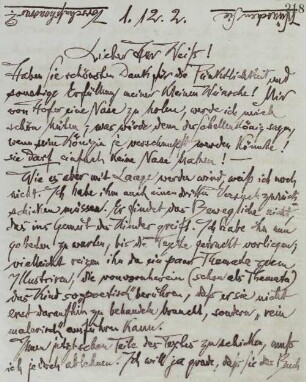 218
1. 12. 2.
Lieber Herr Weiß!
Haben Sie schönsten Dank für die Pünktlichkeit und
sonstige Erfüllung meiner kleinen Wünsche! Mir
von Hofer eine Nase zu holen, werde ich mich
schön hüten; was würde denn der Schellenkönig sagen,
wenn seine Königin je verschnupft werden könnte!
sie darf einfach keine Nase haben! —
Wie es aber mit Laage werden wird, weiß ich noch
nicht. Ich habe ihm auch einen dritten Versuch zurück-
schicken müssen. Er findet das Bewegliche nicht
das ins Gemüt der Kinder greift. Ich habe ihn nun
gebeten zu warten, bis die Texte gedruckt vorliegen;
vielleicht reizen ihn da ein paar Themata zum
Illustriren, die von vornherein (schon als Themata)
das Kind so poetisch berühren, daß er sie nicht
erst daraufhin zu behandeln braucht, sondern „rein
malerisch" ausführen kann.
Ihnen jetzt schon Teile des Textes zu schicken, muß
ich jedoch ablehnen. Ich will ja grade, daß Sie das Buch